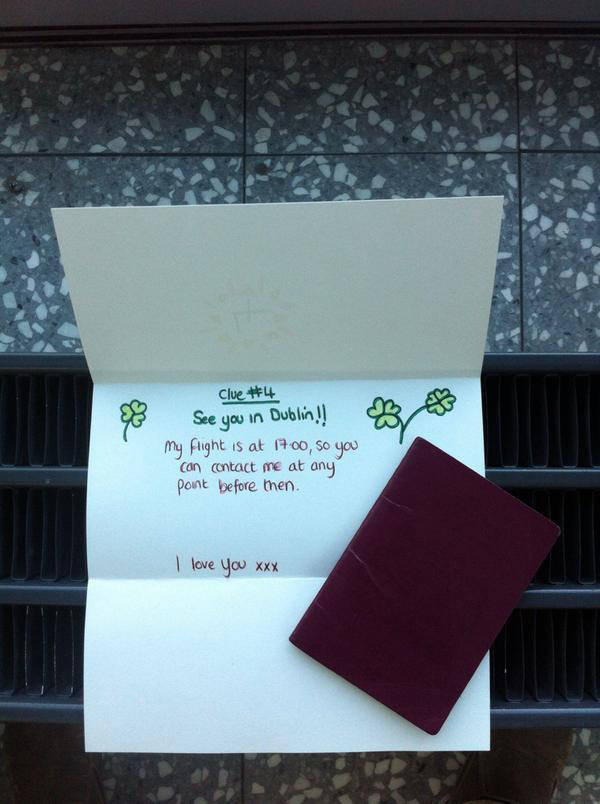 Clue #4
See you in Dublin!!
My flight is at 17:00, so you
can contact me at any
point before then.
I love you xxx